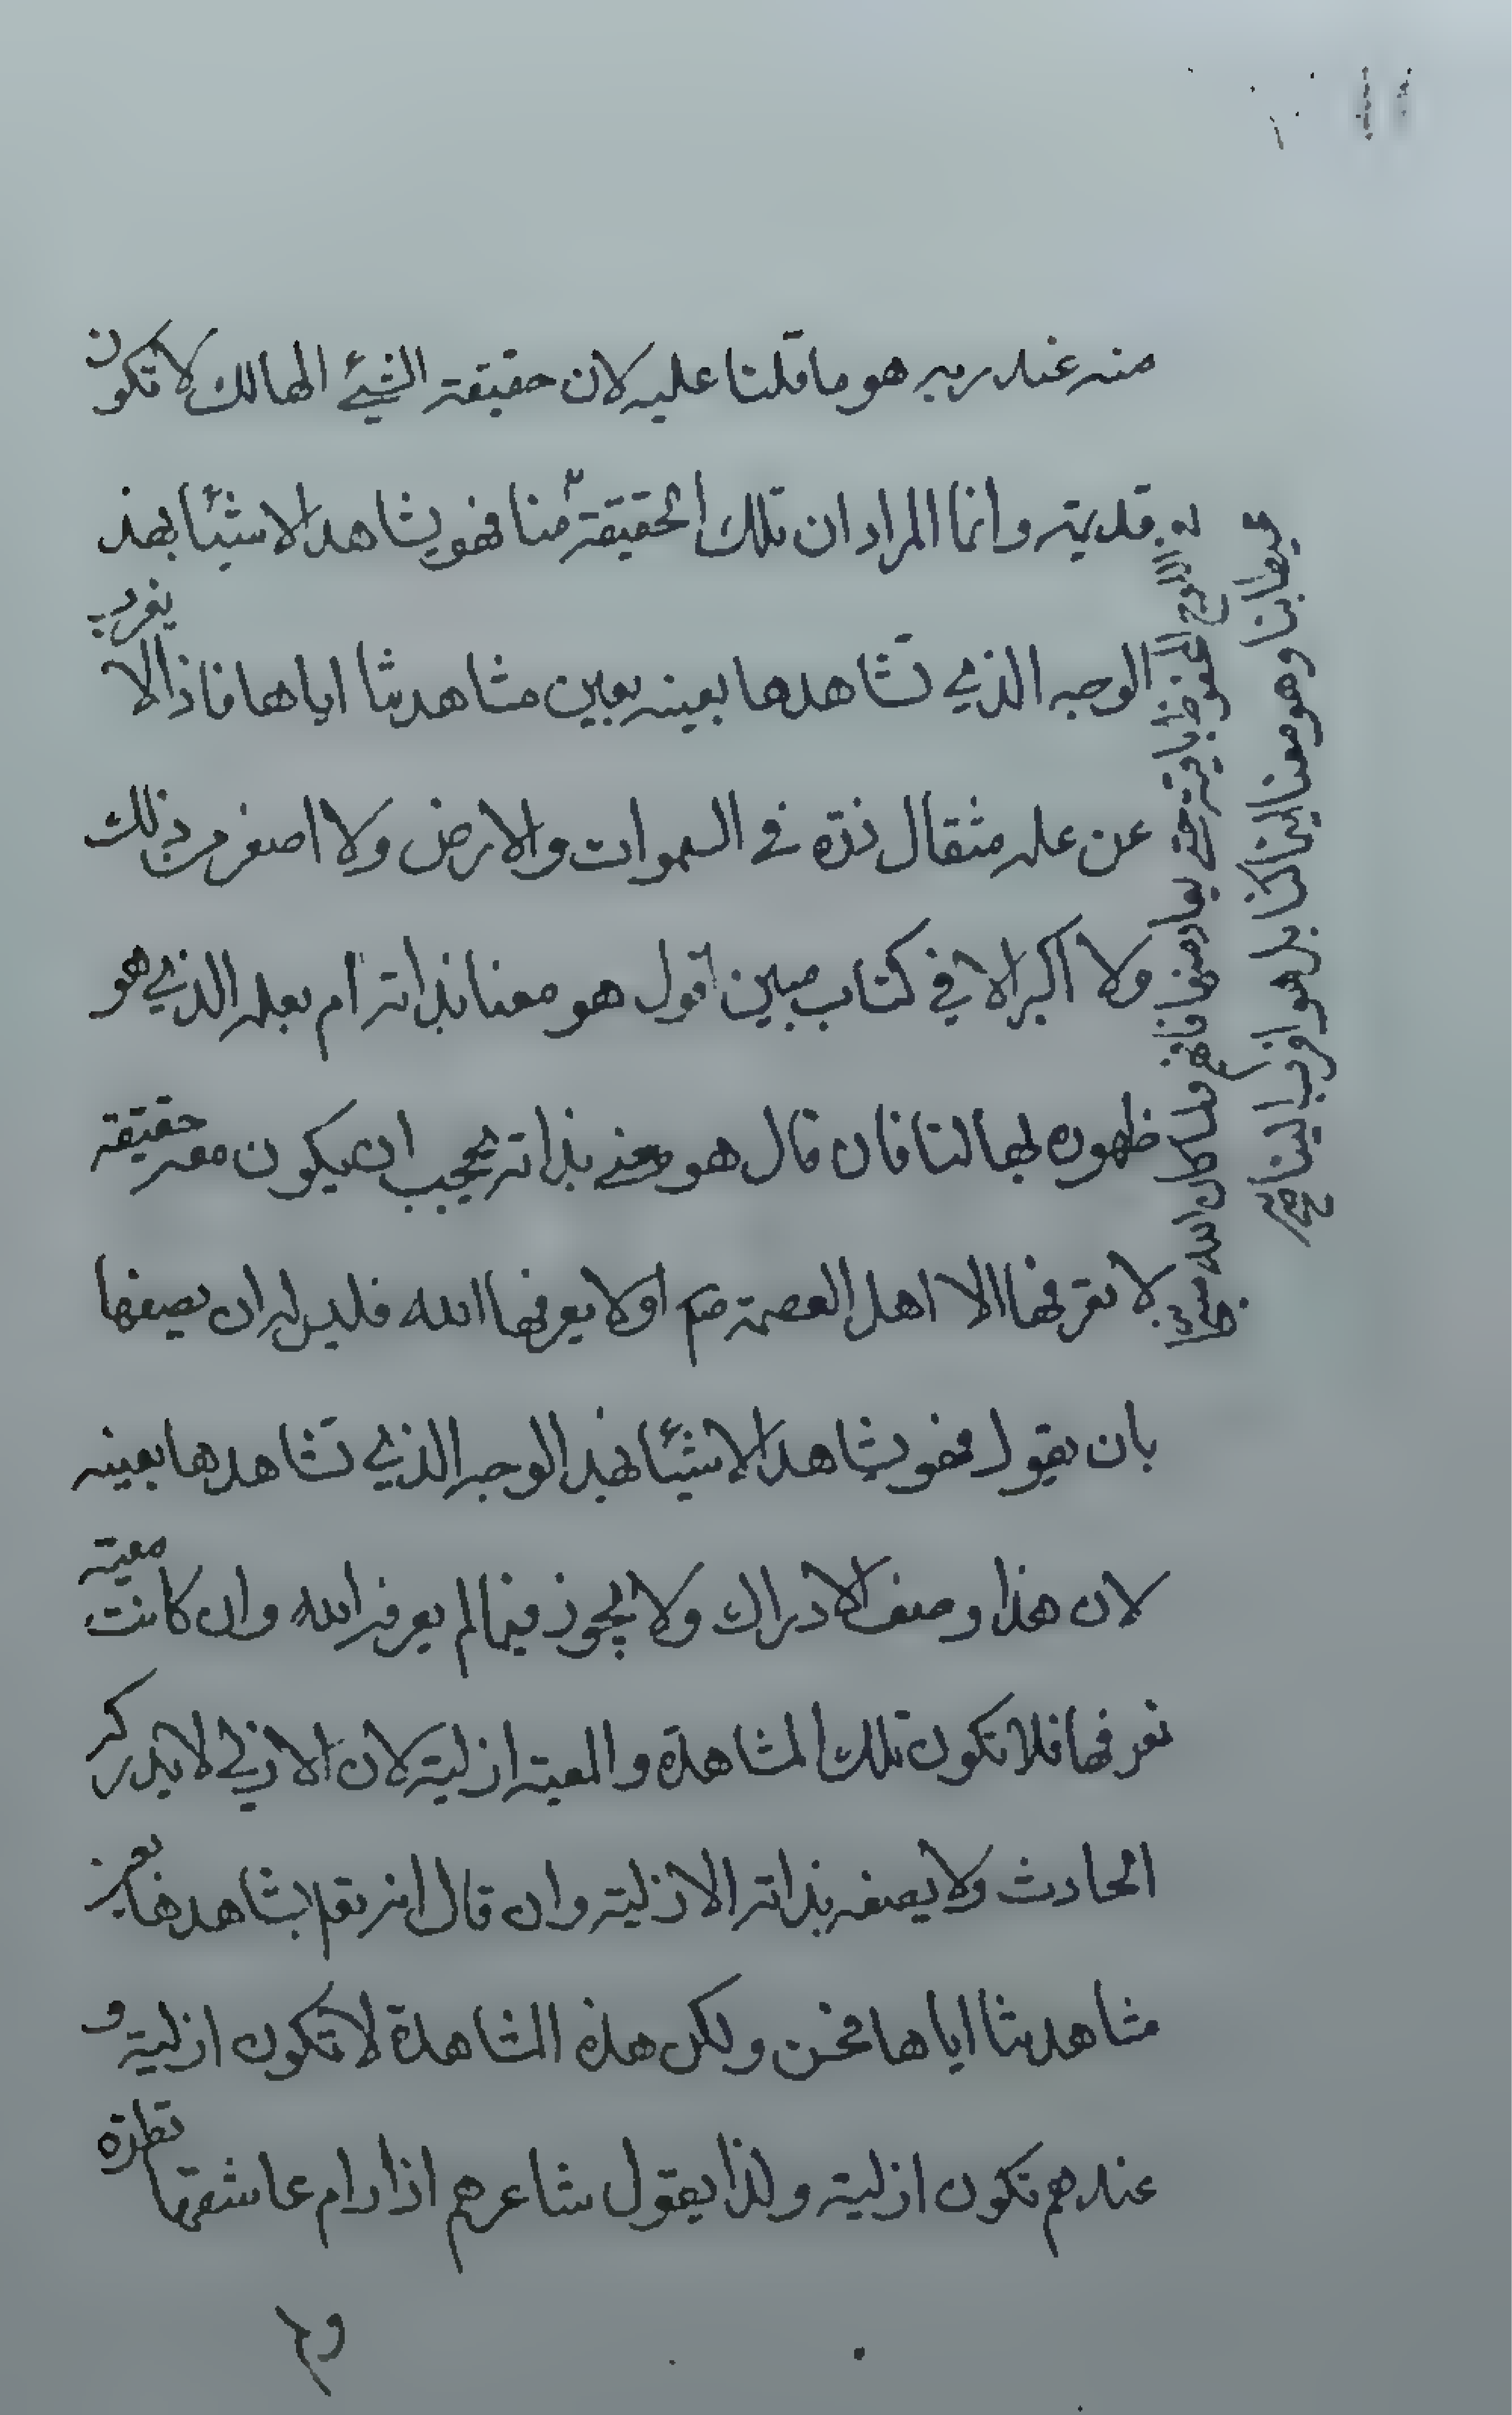 منه عند ربه هو ما قلنا عليه لان حقيقة الشيء الهالك لا تكون
قديمة وانما المراد ان تلك الحقيقة منا فهو يشاهد الاشيئا بهذ
الوجه الذي تشاهدها بعينه بعين مشاهدتنا اياها فاذا لا يغرب
عن علمه مثقال ذرة في السموات والارض ولا اصغر من ذلك
ولا اكبر الا في كتاب مبين اقول هو معنا بذاته ام بعلمه الذي هو
ظهوره لها لنا فان قال هو معني بذاته فيجب ان يكون معه حقيقة
لا تعرفها الا اهل العصمة او لا يعرفها الله فليس له ان يصفها
بان يقول فهو يشاهد الاشيئا بهذ الوجه الذي تشاهدها بعينه
لان هذا وصف الادراك ولا يجوز فيما لم يعرفه الله وان كانت معيته
نعرفها فلا تكون تلك المشاهدة والمعية ازلية لان الازلي لا يدركه
الحادث ولا يصفه بذاته الازلية وان قال انه تعم يشاهدها بعين
مشاهدتنا اياها فنحن ولكن هذه المشاهدة لا تكون ازلية و
عندهم تكون ازلية ولذا يقول شاعرهم اذا رام عاشقها نظرة
ولم
اللوح المحفوظ باقية حتى يعاد منها فافهم
فلما كان الله
بنا وهو معنا اينما كنا بل هو اقرب الينا